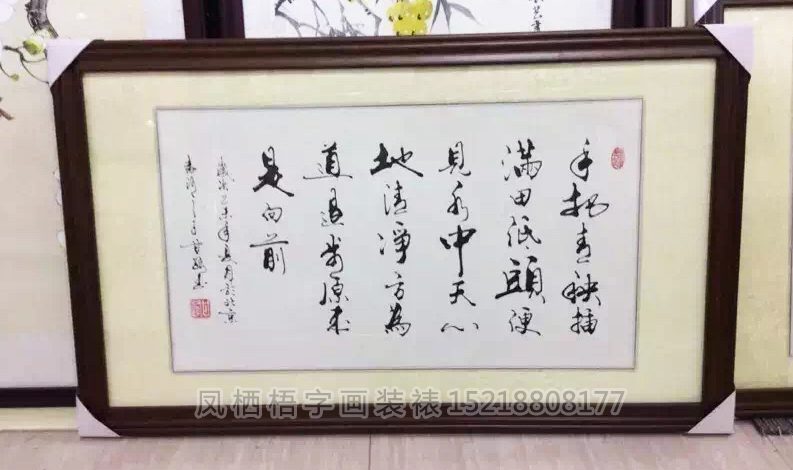 手把青秧插
滿田低頭便
見水中天心
地清淨方為
道退步原来
是向前
於北京
凤栖梧字画装裱15218808177